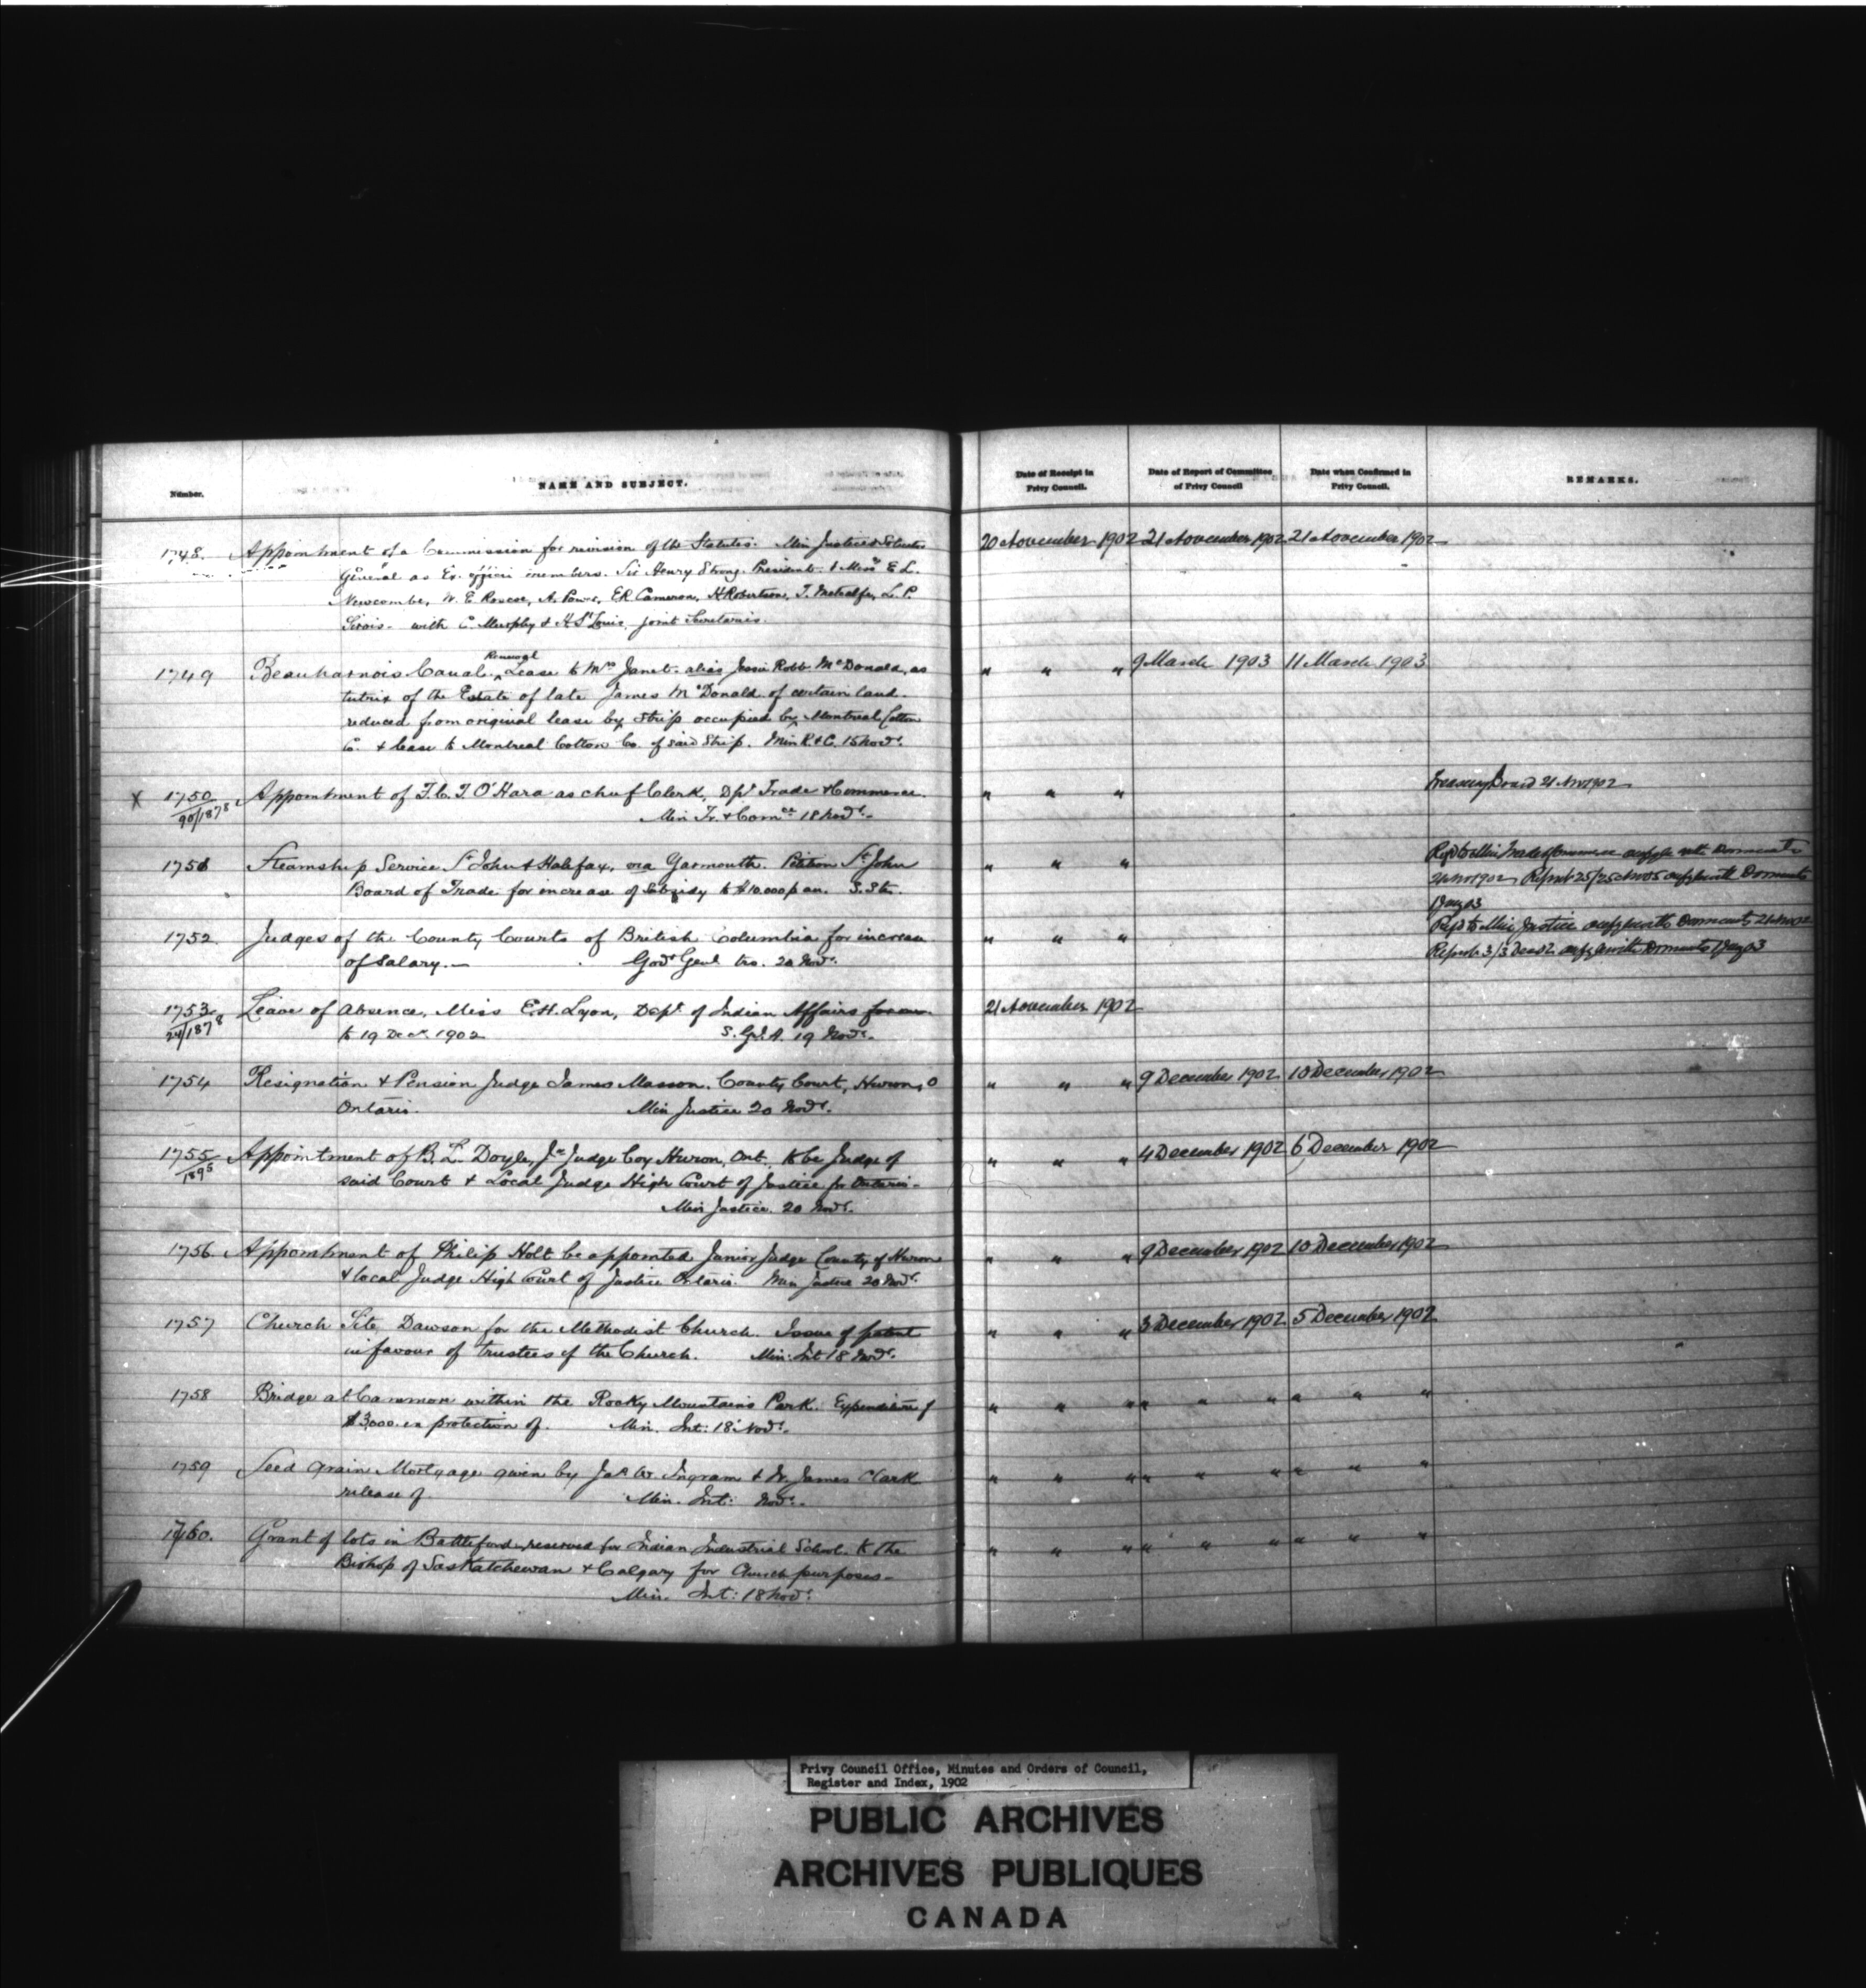 Number.
NAME AND SUBJECT.
Date of Receipt in Privy Council.
Date of Report of Committee of Privy Council
Date when Confirmed in Privy Council.
REMARKS.
1748. Appointment of a Commission for revision of the Statutes. Min Justice & Solicitor 20 November 1902 21 November 1902 21 November 1902
General as Ex. officio members. Sir Henry Strong. President. & Messrs E L.
Newcombe, W. E Roscoe, A. Power, E R Cameron, H Robertson, T. Metcalfe, L. P.
Sirois - with C. Murphy & H. St Louis, joint Secretaries.
1749 Beauharnois Canal. Renewal Lease to Mrs Janet alias Jessie Robb McDonald, as " " " 9 March 1903 11 March 1903
tutrix of the Estate of late James McDonald of certain land.
reduced from original lease by strip occupied by Montreal Cotton
C. & lease to Montreal Cotton Co. of said Strip. Min R & C. 15 Novr.
X 1750 Appointment of F. C. T. O'Hara as chief Clerk, Dpt Trade & Commerce. " " " Treasury Board 21 Nov 1902
90/1878 Min Tr. & Comce 18 Novr.
1751 Steamship Service St John & Halifax, via Yarmouth. Petition St John " " " Refd to Min Trade & Commerce
Board of Trade for increase of Subsidy to $10.000 p an. S. Ste.
1752. Judges of the County Courts of British Columbia for increase " " " Refd to Min Justice
of Salary. Govr Genl tro. 20 Novr.
1753 Leave of Absence, Miss E. H. Lyon, Dept of Indian Affairs 21 November 1902
24/1878 to 19 Decr. 1902 S. G. I. A. 19 Novr.
1754 Resignation & Pension Judge James Masson. County Court, Huron, O " " " 9 December 1902 10 December 1902
Ontario. Min Justice 20 Novr.
1755 Appointment of B. L. Doyle, Jr Judge Coy Huron, Ont. to be Judge of " " " 4 December 1902 6 December 1902
1895 said Court & Local Judge High Court of Justice for Ontario.
Min Justice. 20 Novr.
1756. Appointment of Philip Holt be appointed Junior Judge County of Huron " " " 9 December 1902 10 December 1902
& local Judge High Court of Justice Ontario. Min Justice 20 Novr.
1757 Church Site Dawson for the Methodist Church. Issue of patent " " " 3 December 1902 5 December 1902
in favour of trustees of the Church. Min. Int 18 Novr.
1758 Bridge at Canmore within the Rocky Mountains Park. Expenditure of " " " " " " " " "
$3,000 in protection of. Min. Int: 18 Novr.
1759 Seed Grain Mortgage given by Jas W. Ingram & W. James Clark " " " " " " " " "
release of. Min. Int: Novr.
1760. Grant of lots in Battleford, reserved for Indian Industrial School. to the " " " " " " " " "
Bishop of Saskatchewan & Calgary for Church purposes -
Min. Int: 18 Novr.
Privy Council Office, Minutes and Orders of Council,
Register and Index, 1902
PUBLIC ARCHIVES
ARCHIVES PUBLIQUES
CANADA